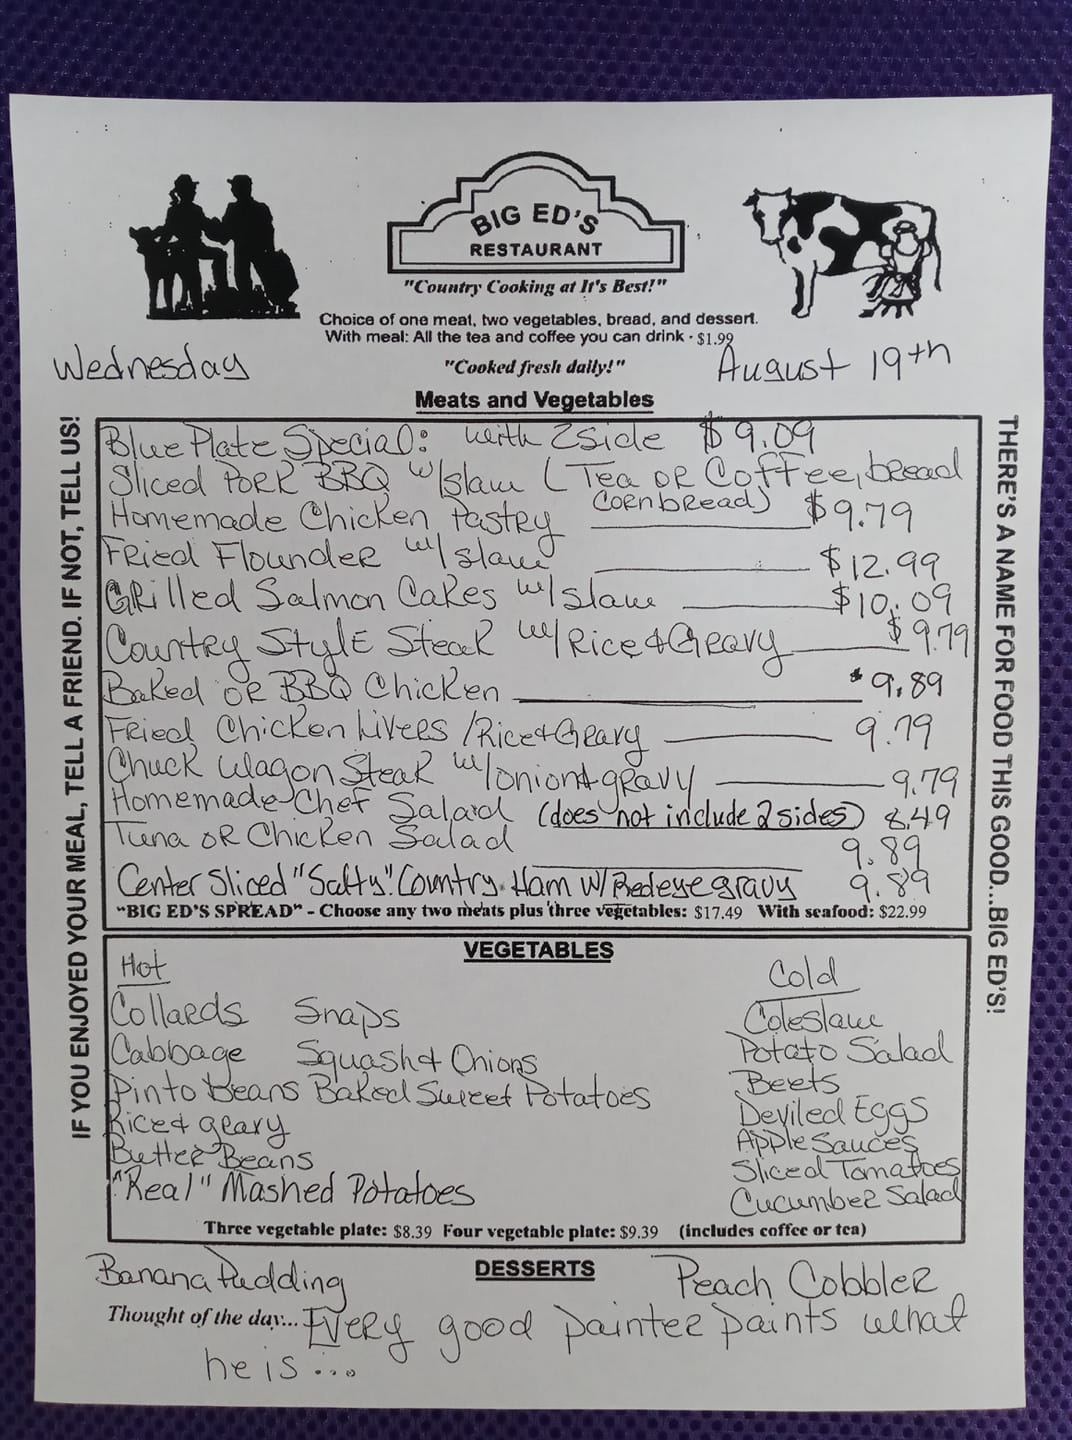 BIG ED'S
RESTAURANT
"Country Cooking at It's Best!"
Choice of one meat, two vegetables, bread, and dessert.
With meal: All the tea and coffee you can drink · $1.99
Wednesday "Cooked fresh daily!" August 19th
Meats and Vegetables
IF YOU ENJOYED YOUR MEAL, TELL A FRIEND. IF NOT, TELL US!
Blue Plate Special: with 2side $9.09
Sliced Pork BBQ w/slaw (Tea or Coffee, bread
cornbread)
Homemade Chicken Pastry $9.79
Fried Flounder w/slaw $12.99
Grilled Salmon Cakes w/slaw $10.09
Country Style Steak w/Rice & Gravy $9.79
Baked or BBQ Chicken $9.89
Fried Chicken Livers /Rice & Gravy 9.79
Chuck Wagon Steak w/onion & gravy 9.79
Homemade Chef Salad (does not include 2 sides) 8.49
Tuna or Chicken Salad 9.89
Center Sliced "Salty" Country Ham w/Redeye gravy 9.89
"BIG ED'S SPREAD" - Choose any two meats plus three vegetables: $17.49 With seafood: $22.99
THERE'S A NAME FOR FOOD THIS GOOD...BIG ED'S!
VEGETABLES
Hot
Collards Snaps
Cabbage Squash & Onions
Pinto Beans Baked Sweet Potatoes
Rice & gravy
Butter Beans
"Real" Mashed Potatoes
Cold
Coleslaw
Potato Salad
Beets
Deviled Eggs
Apple Sauces
Sliced Tomatoes
Cucumber Salad
Three vegetable plate: $8.39 Four vegetable plate: $9.39 (includes coffee or tea)
DESSERTS
Banana Pudding Peach Cobbler
Thought of the day... Every good painter paints what
he is ...